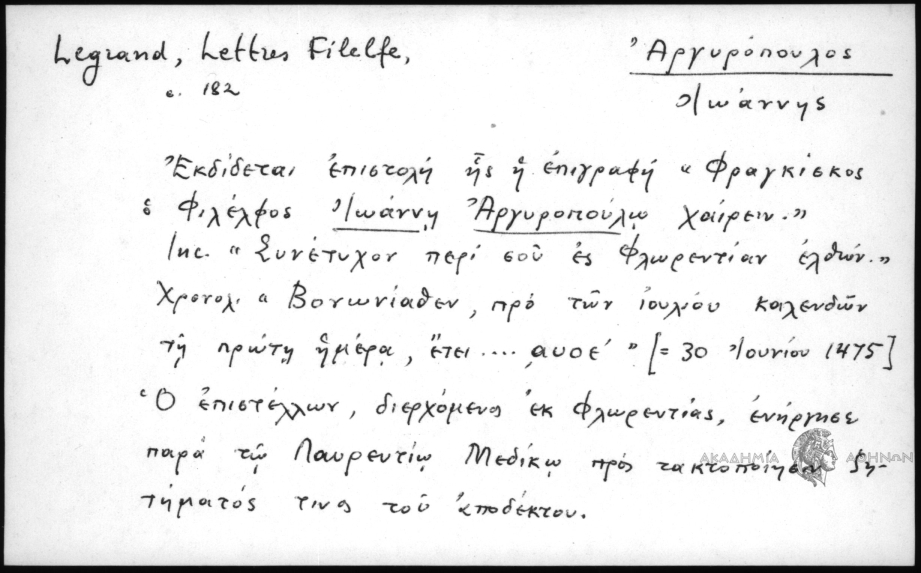 Legrand, Lettres Filelfe,
σ. 182
Ἀργυρόπουλος
Ἰωάννης
Ἐκδίδεται ἐπιστολή ἧς ἡ ἐπιγραφή « Φραγκίσκος
ὁ Φιλέλφος Ἰωάννῃ Ἀργυροπούλῳ χαίρειν.»
Inc. « Συνέτυχον περί σοῦ ἐς Φλωρεντίαν ἐλθών.»
Χρονολ. « Βονωνίαθεν, πρό τῶν ἰουλίου καλενδῶν
τῇ πρώτῃ ἡμέρᾳ, ἔτει .... ͵αυοε´ » [= 30 Ἰουνίου 1475]
Ὁ ἐπιστέλλων, διερχόμενος ἐκ Φλωρεντίας, ἐνήργησε
παρά τῷ Λαυρεντίῳ Μεδίκῳ πρός τακτοποίησιν ζη-
τήματός τινος τοῦ ἀποδέκτου.
ΑΚΑΔΗΜΙΑ ΑΘΗΝΩΝ